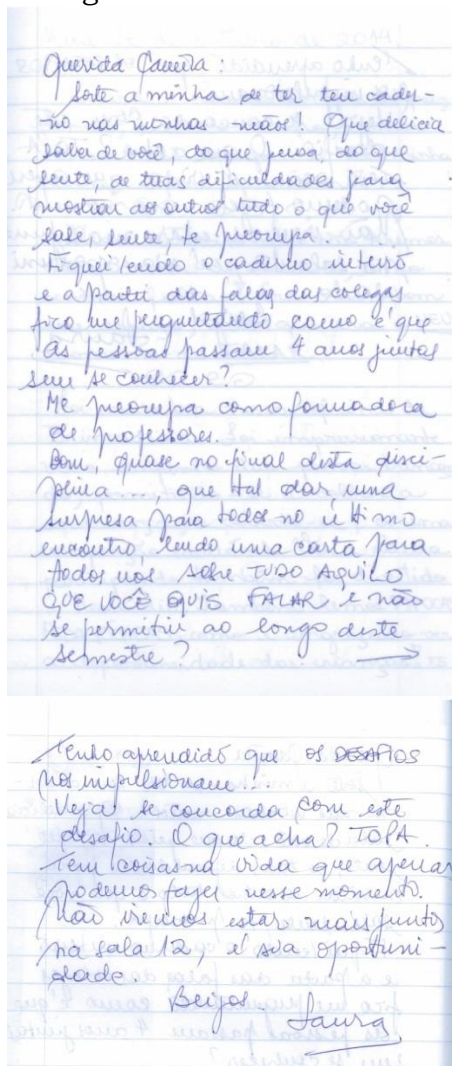 Querida Camila:
Sorte a minha de ter teu cader-
-no nas minhas mãos! Que delícia
saber de você, do que pensa, do que
sente, de tuas dificuldades para
mostrar aos outros tudo o que você
sabe, sente, te preocupa.
Fiquei lendo o caderno inteiro
e a partir das falas das colegas
fico me perguntando como é que
as pessoas passam 4 anos juntas
sem se conhecer?
Me preocupa como formadora
de professores.
Bom, quase no final desta disci-
plina..., que tal dar uma
surpresa para todos no último
encontro, lendo uma carta para
todos nós sobre TUDO AQUILO
QUE VOCÊ QUIS FALAR e não
se permitiu ao longo deste
semestre?
Tenho aprendido que os DESAFIOS
nos impulsionam!!
Veja se concorda com este
desafio. O que acha? TOPA.
Tem coisas na vida que apenas
podemos fazer nesse momento.
Não iremos estar mais juntos
na sala 12, é sua oportuni-
dade.
Beijos.
Laura